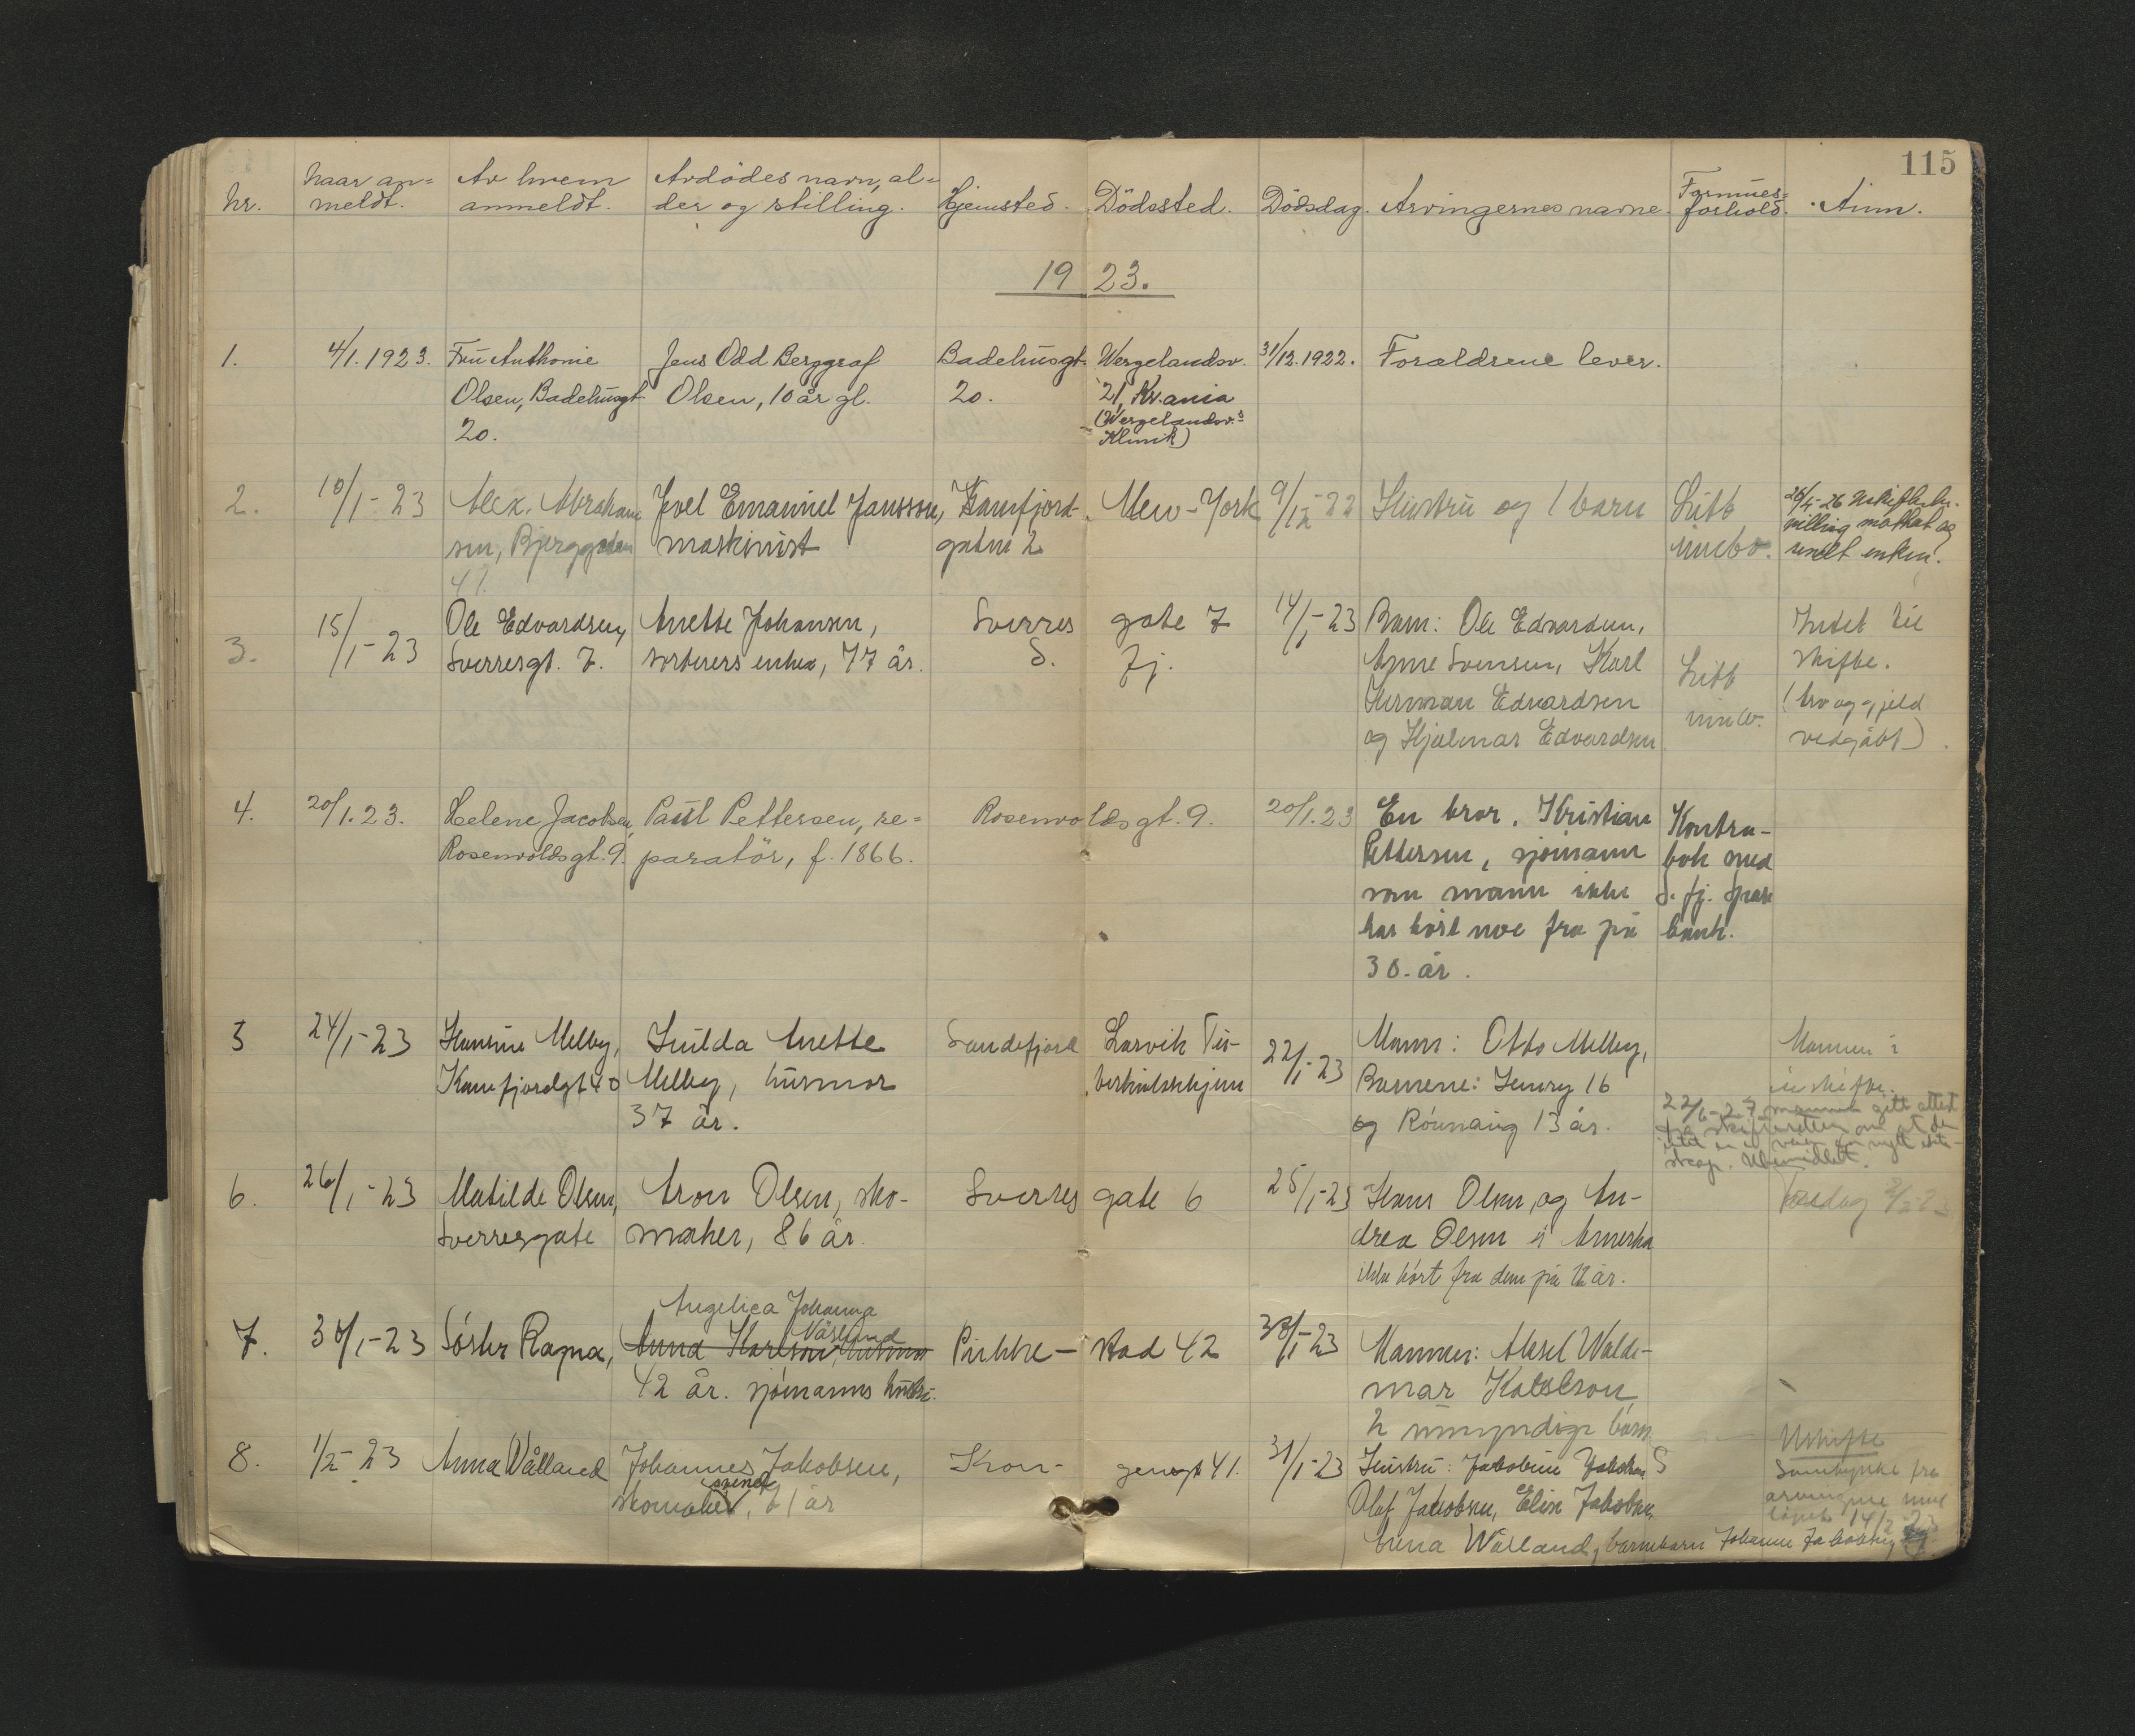 115
Nr.
Naar an=
meldt.
Av hvem
anmeldt.
Avdødes navn, al=
der og stilling.
Hjemsted.
Dödssted.
Dödsdag.
Arvingernes navne.
Formues=
forhold.
Anm.
1923.
1.
4/1.1923.
Fru Anthonie
Olsen, Badehusgt
20.
Jens Odd Berggraf
Olsen, 10 år gl.
Badehusgt.
20.
Wergelandsv.
21, Kr.ania
(Wergelandsv.s
Klinik)
31/12.1922.
Forældrene lever.
2.
10/1-23
Alex. Abraham
sen, Bjerggaten
41.
Joel Emanuel Jansson,
maskinist
Kamfjord-
gaten 2
New-York
9/12-22
Hustru og 1 barn
Litt
innbo.
26/4-26 Uskiftebe-
villing mottat og
sendt enken.
3.
15/1-23
Ole Edvardsen,
Sverresgt. 7.
Anette Johansen,
enke, 77 år.
Sverres gate 7
S. fj.
14/1-23
Barn: Ole Edvardsen,
Anne Svensen, Karl
Herman Edvardsen
og Hjalmar Edvardsen
Litt
innb.
Intet til
skifte.
(Arv og gjeld
vedgått)
4.
20/1.23.
Helene Jacobsen,
Rosenvoldsgt. 9.
Paul Pettersen, re=
paratör, f. 1866.
Rosenvoldsgt. 9.
20/1.23
En bror, Kristian
Pettersen, sjömann
som mann ikke
har hört noe fra på
30 år.
Kontra-
bok med
S. fj. spare
bank.
5
24/1-23
Hansine Melby,
Kamfjordgt 40
Hulda Anette
Melby, husmor
37 år.
Sandefjord
Larvik Tu-
berkulosehjem
22/1-23
Mann: Otto Melby,
Barnene: Henry 16
og Rönnaug 13 år.
Mannen i
uskifte.
22/6-27 mannen gitt attest
fra skifteretten om at der
intet er i veien for nytt ekte-
skap. Ubemidlet.
6.
26/1-23
Matilde Olsen,
Sverresgate
Aron Olsen, sko-
maker, 86 år.
Sverres gate 6
25/1-23
Hans Olsen, og An-
drea Olsen i Amerika
ikke hört fra dem på 12 år.
Torsdag 2/2-23
7.
30/1-23
Söster Ragna,
Angelica Johanna
Anna Karlson, husmor
42 år. sjömanns hustru.
Pukke- stad 42
30/1-23
Mannen: Aksel Walde-
mar
2 umyndige barn
8.
1/2-23
Anna Wålland
Johannes Jakobsen,
svend
skomaker, 61 år
Kron- gensgt 41.
31/1-23
Hustru: Jakobine Jakobsen
Olaf Jakobsen, Elise Jakobsen,
Anna Wålland, barnebarn Johanne Jakobsen
Uskifte
Samtykke fra
arvingene inn
14/2-23